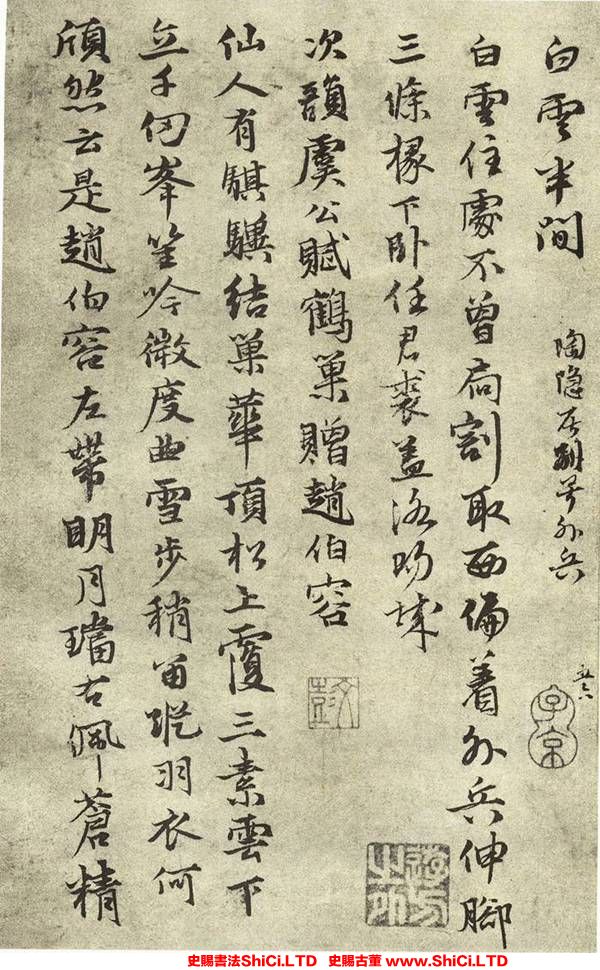 白雲半間
陶隱居別号外兵
白雲住處不曾扃割取西偏着外兵伸腳
三條椽下卧任君裘盖洛陽城
次韻虞公賦鶴巢贈趙伯容
仙人有騏驥結巢華頂松上覆三素雲下
立千仞峯笙吟微度曲雪步稍留蹤羽衣何
頎然云是趙伯容左帶明月璫右佩蒼精
子京
史賜書法ShiCi.LTD 史賜古董 www.ShiCi.LTD